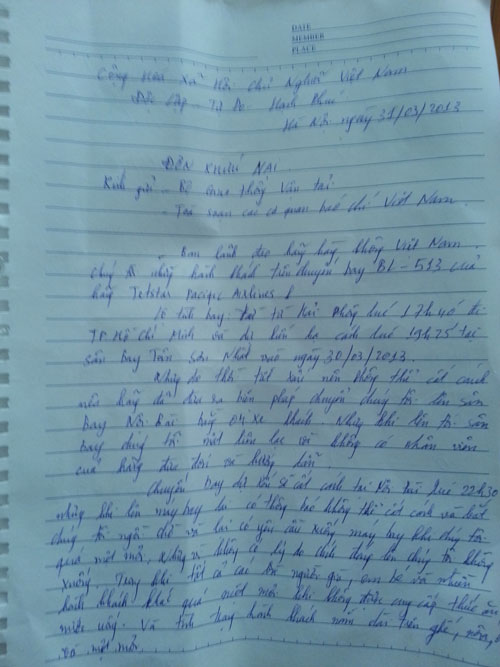 DATE
MEMBER
PLACE
Cộng Hòa Xã Hội Chủ Nghĩa Việt Nam
Độc Lập Tự Do Hạnh Phúc
Hà Nội ngày 31/03/2013
ĐƠN KHIẾU NẠI
Kính gửi - Bộ Giao thông Vận tải
- Toà soạn các cơ quan báo chí Việt Nam.
- Ban lãnh đạo hãng hàng không Việt Nam.
Chúng tôi những hành khách trên chuyến bay BL-513 của
hãng Jetstar Pacific Airlines
lộ trình bay: Từ Hải Phòng lúc 17h40 đi
TP Hồ Chí Minh và dự kiến hạ cánh lúc 19h25 tại
sân bay Tân Sơn Nhất vào ngày 30/03/2013.
Nhưng do thời tiết xấu nên không thể cất cánh
nên hãng đã đưa ra biện pháp chuyển chúng tôi lên sân
bay Nội Bài bằng ôtô khách. Nhưng khi lên tới sân
bay chúng tôi mất liên lạc và không có nhân viên
của hãng đưa đón và hướng dẫn.
Chuyến bay dự kiến sẽ cất cánh tại Nội Bài lúc 22h30
nhưng khi lên máy bay lại có thông báo không thể cất cánh và bắt
chúng tôi ngồi chờ và lại có yêu cầu xuống máy bay khi chúng tôi
quá mệt mỏi. Nhưng vì không có lý do chính đáng lên chúng tôi không
xuống. Trong khi tất cả các người già, em bé và nhiều
hành khách khác quá mệt mỏi khi không được cung cấp thức ăn
nước uống. Và tình trạng hành khách nằm dài trên ghế,
và mệt mỏi.